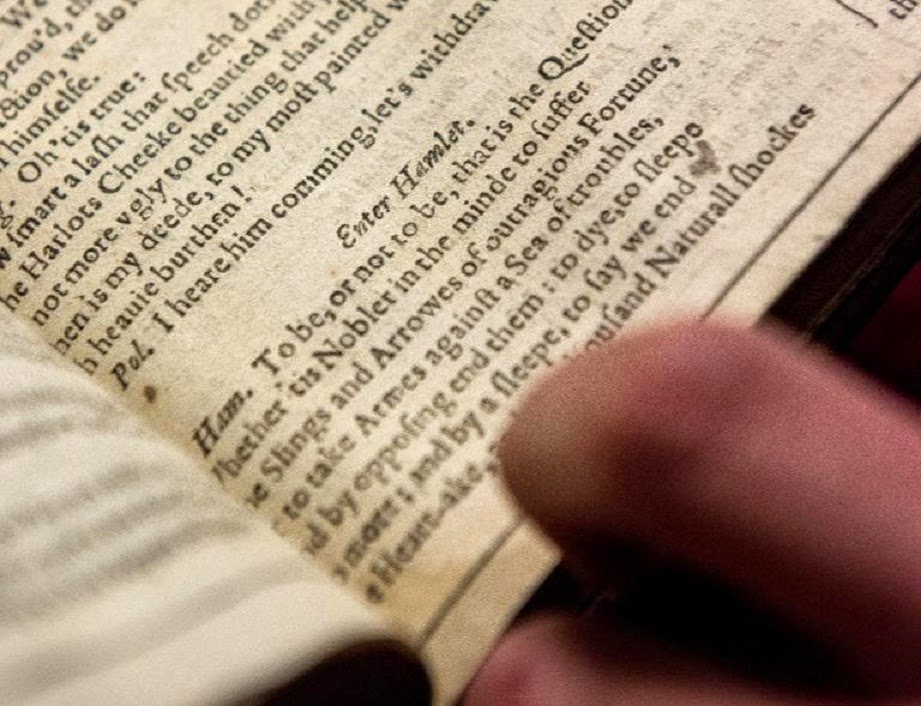 We
prou'd, th
ction, we do
himselfe.
Oh 'tis true:
ſmart a laſh that ſpeech dot
he Harlots Cheeke beautied with
not more vgly to the thing that help
hen is my deede, to my moſt painted w
heauie burthen!
Pol. I heare him comming, let's withdra
Enter Hamlet.
Ham. To be, or not to be, that is the Queſtion
hether 'tis Nobler in the minde to ſuffer
e Slings and Arrowes of outragious Fortune,
to take Armes againſt a Sea of troubles,
nd by oppoſing end them: to dye, to ſleepe
more; and by a ſleepe, to ſay we end
e Heart-ake, ouſand Naturall ſhockes
th